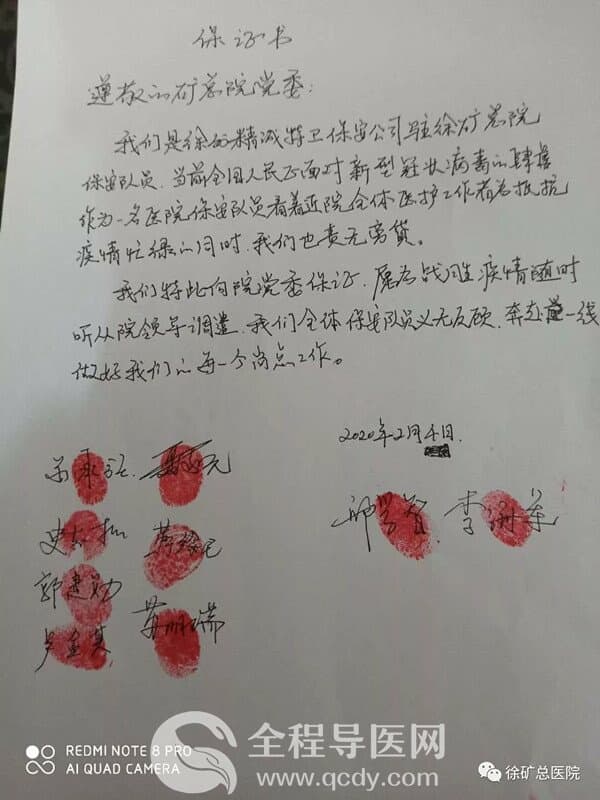 保证书
遵敬的矿总院党委:
我们是徐矿精诚特卫保安公司驻徐矿总院
保安队员,当前全国人民正面对新型冠状病毒的肆虐
作为一名医院保安队员看着医院全体医护工作者为抵抗
疫情忙碌的同时,我们也责无旁贷。
我们特此向院党委保证,愿为战胜疫情随时
听从院领导调遣,我们全体保安队员义无反顾,奔赴一线
做好我们的每一个岗点工作。
2020年2月4日.
郭建勋
苏明瑞
REDMI NOTE 8 PRO
AI QUAD CAMERA
全程导医网
www.qcdy.com
徐矿总医院